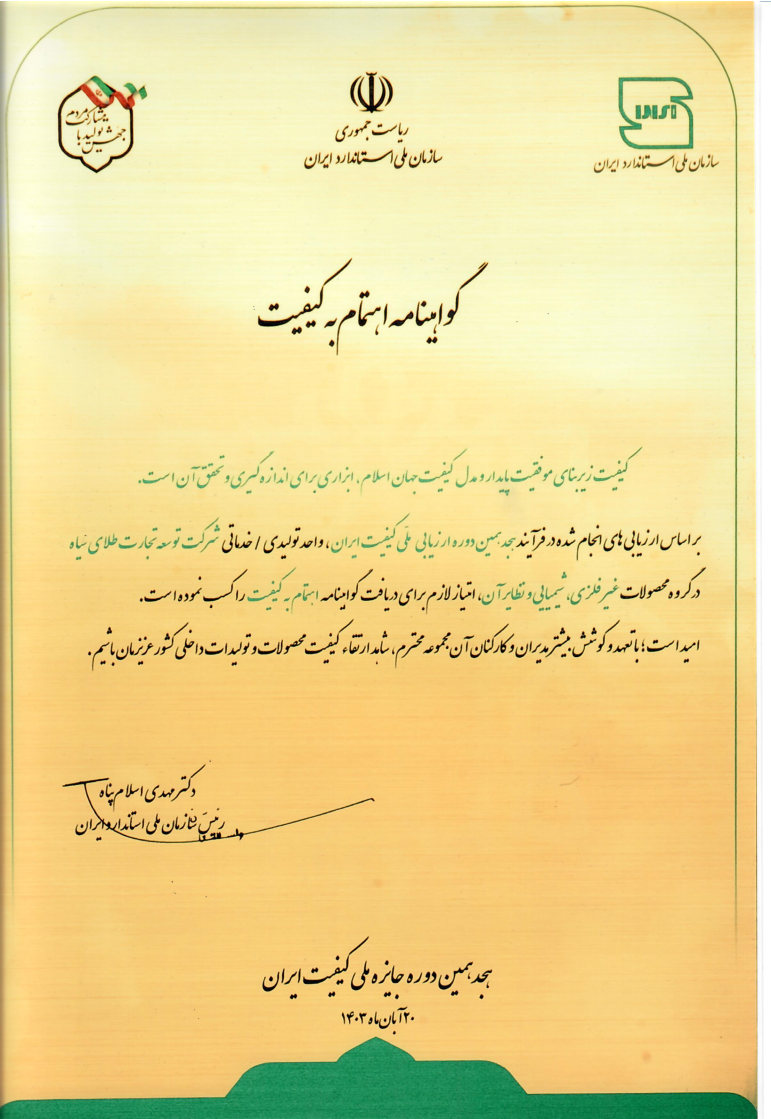 جهش تولید با
مشارکت مردم
ریاست جمهوری
سازمان ملی استاندارد ایران
سازمان ملی استاندارد ایران
گواهینامه اهتمام به کیفیت
کیفیت زیربنای موفقیت پایدار و مدل کیفیت جهان اسلام، ابزاری برای اندازه گیری و تحقق آن است.
بر اساس ارزیابی های انجام شده در فرآیند هجدهمین دوره ارزیابی ملّی کیفیت ایران، واحد تولیدی / خدماتی شرکت توسعه تجارت طلای سیاه
در گروه محصولات غیرفلزی، شیمیایی و نظایر آن، امتیاز لازم برای دریافت گواهینامه اهتمام به کیفیت را کسب نموده است.
امید است؛ با تعهد و کوشش بیشتر مدیران و کارکنان آن مجموعه محترم، شاهد ارتقاء کیفیت محصولات و تولیدات داخلی کشور عزیزمان باشیم.
دکتر مهدی اسلام پناه
رئیس سازمان ملی استاندارد ایران
هجدهمین دوره جایزه ملی کیفیت ایران
۲۰ آبان ماه ۱۴۰۳